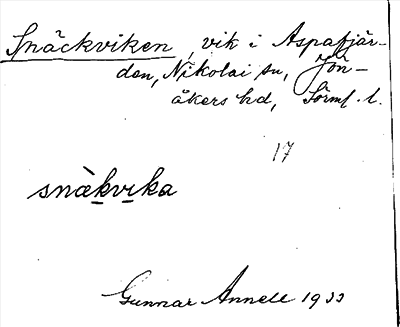 Snäckviken, vik i Aspafjär-
den, Nikolai sn, Jön-
åkers hd, Sörml. l.
17
snὰkvi̠ka
Gunnar Annell 1933